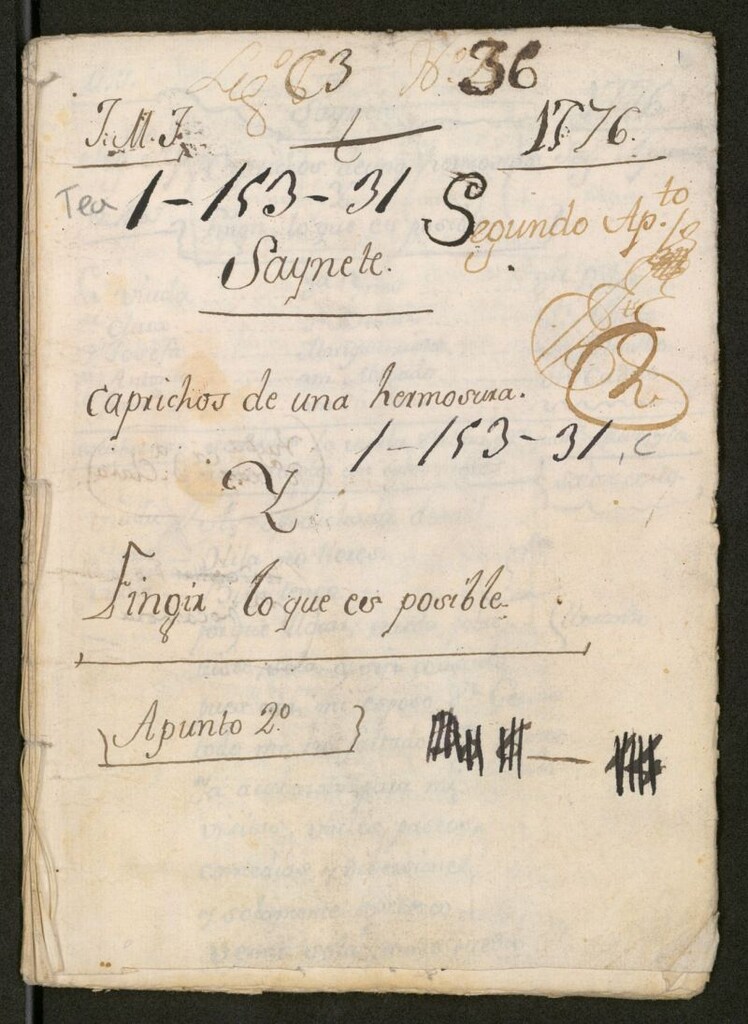 Leg.º 63 N.º 36
J. M. J. 1776.
Tea 1-153-31 Segundo Ap.to
Saynete.
Caprichos de una hermosura.
1-153-31, C
Y
Fingir lo que es posible
Apunto 2.º